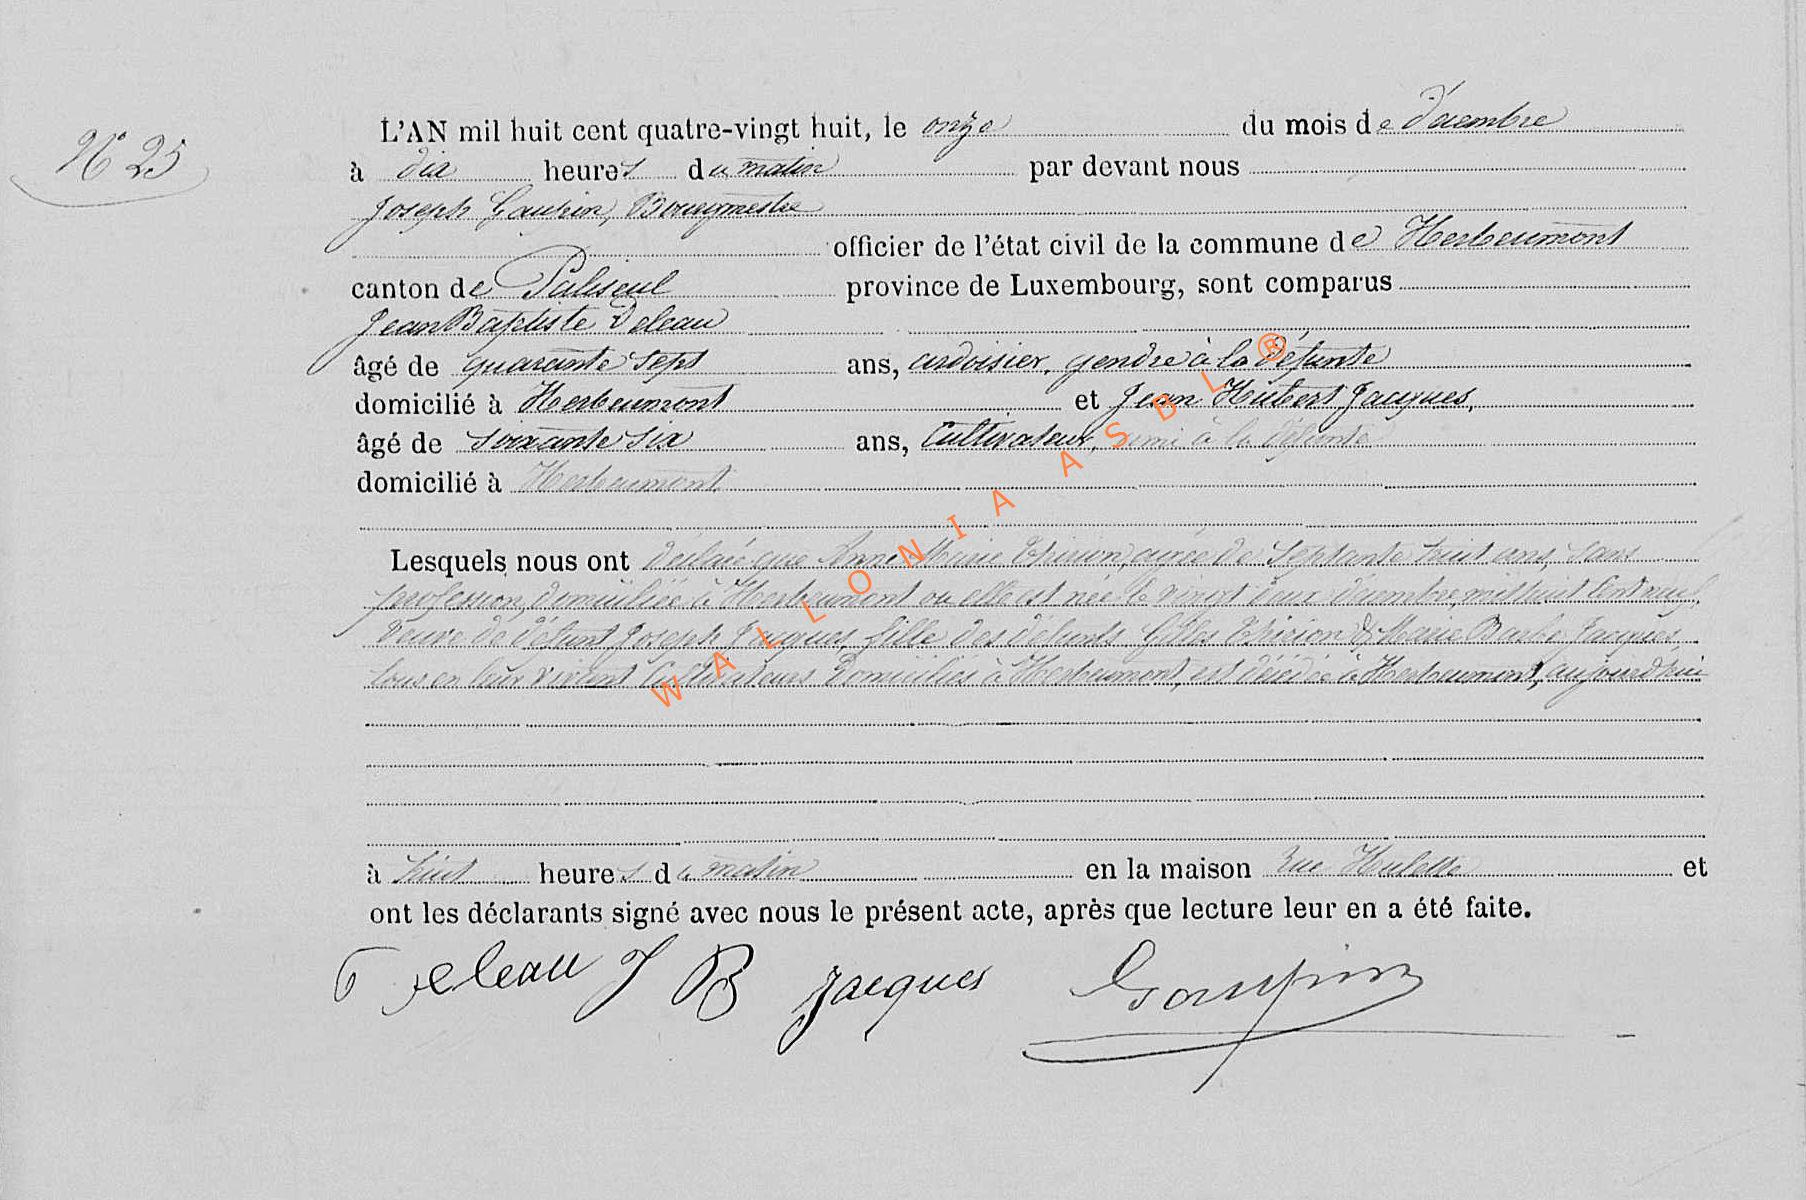 N° 25
L'AN mil huit cent quatre-vingt huit, le onze du mois de décembre
à dix heures du matin par devant nous
Joseph Gaupin, Bourgmestre
officier de l'état civil de la commune de Herbeumont
canton de Paliseul province de Luxembourg, sont comparus
Jean Baptiste Deleau
âgé de quarante sept ans, ardoisier, gendre à la défunte
domicilié à Herbeumont et Jean Hubert Jacques,
âgé de soixante six ans, Cultivateur, ami à la défunte
domicilié à Herbeumont
Lesquels nous ont déclaré que Anne Marie Thirion, agée de septante huit ans, sans
profession, domiciliée à Herbeumont ou elle est née le vingt deux décembre mil huit cent neuf,
veuve de défunt Joseph Jacques, fille des défunts Gilles Thirion & Marie Barbe Jacques,
tous en leur vivant Cultivateurs domiciliés à Herbeumont, est décédée à Herbeumont, aujourd'hui
à huit heures du matin en la maison rue Hulette et
ont les déclarants signé avec nous le présent acte, après que lecture leur en a été faite.
Deleau J B Jacques Gaupin
WALLONIA ASBL ®